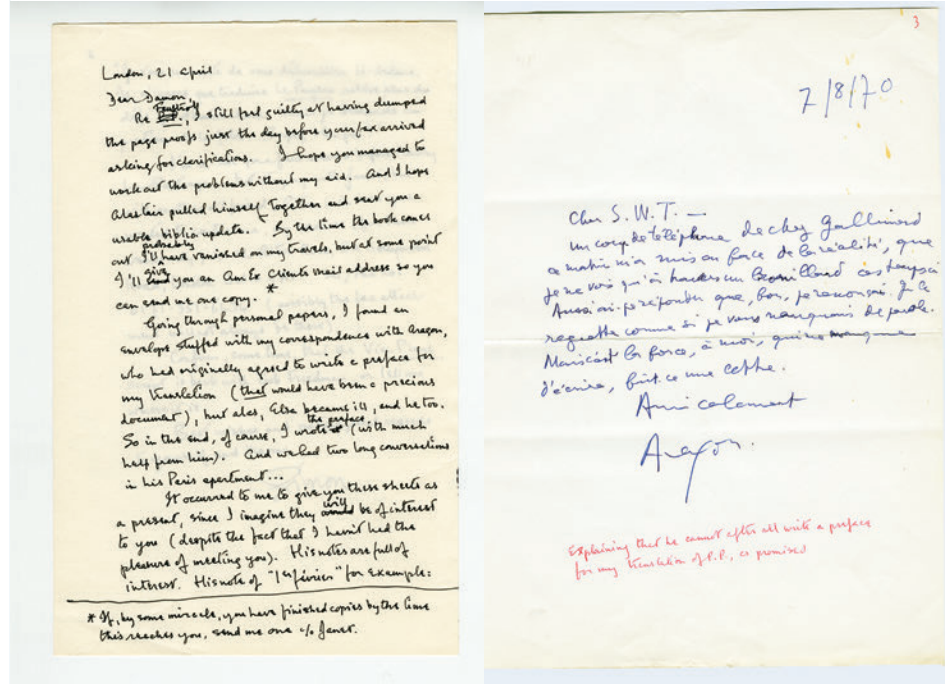 London, 21 april
Dear Damon,
Re, I still feel guilty at having dumped
the page proofs just the day before your fax arrived
asking for clarifications. I hope you managed to
work out the problems without my aid. And I hope
Alastair pulled himself together and sent you a
usable biblio update. By the time the book comes
out I'll probably have vanished on my travels, but at some point
I'll give you an Am Ex Clients mail address so you
can send me one copy. *
Going through personal papers, I found an
envelope stuffed with my correspondence with Aragon,
who had originally agreed to write a preface for
my translation (that would have been a precious
document), but alas, Elsa became ill, and he too.
So in the end, of course, I wrote the preface (with much
help from him). And we had two long conversations
in his Paris apartment...
It occurred to me to give you these sheets as
a present, since I imagine they will be of interest
to you (despite the fact that I haven't had the
pleasure of meeting you). His notes are full of
interest. His note of "1er février" for example:
* If, by some miracle, you have finished copies by the time
this reaches you, send me one c/o Janet.
3
7/8/70
Cher S.W.T. —
un coup de téléphone de chez Gallimard
ce matin m'a mis en face de la réalité, que
je ne vois qu'à travers un brouillard ces temps-ci
Aussi ai-je répondu que, bon, je renonçais. Je le
regrette comme si je vous manquais de parole.
Mais c'est la force, à moi, qui me manque
d'écrire, fût-ce une lettre.
Amicalement
Aragon.
Explaining that he cannot after all write a preface
for my translation of P.P., as promised